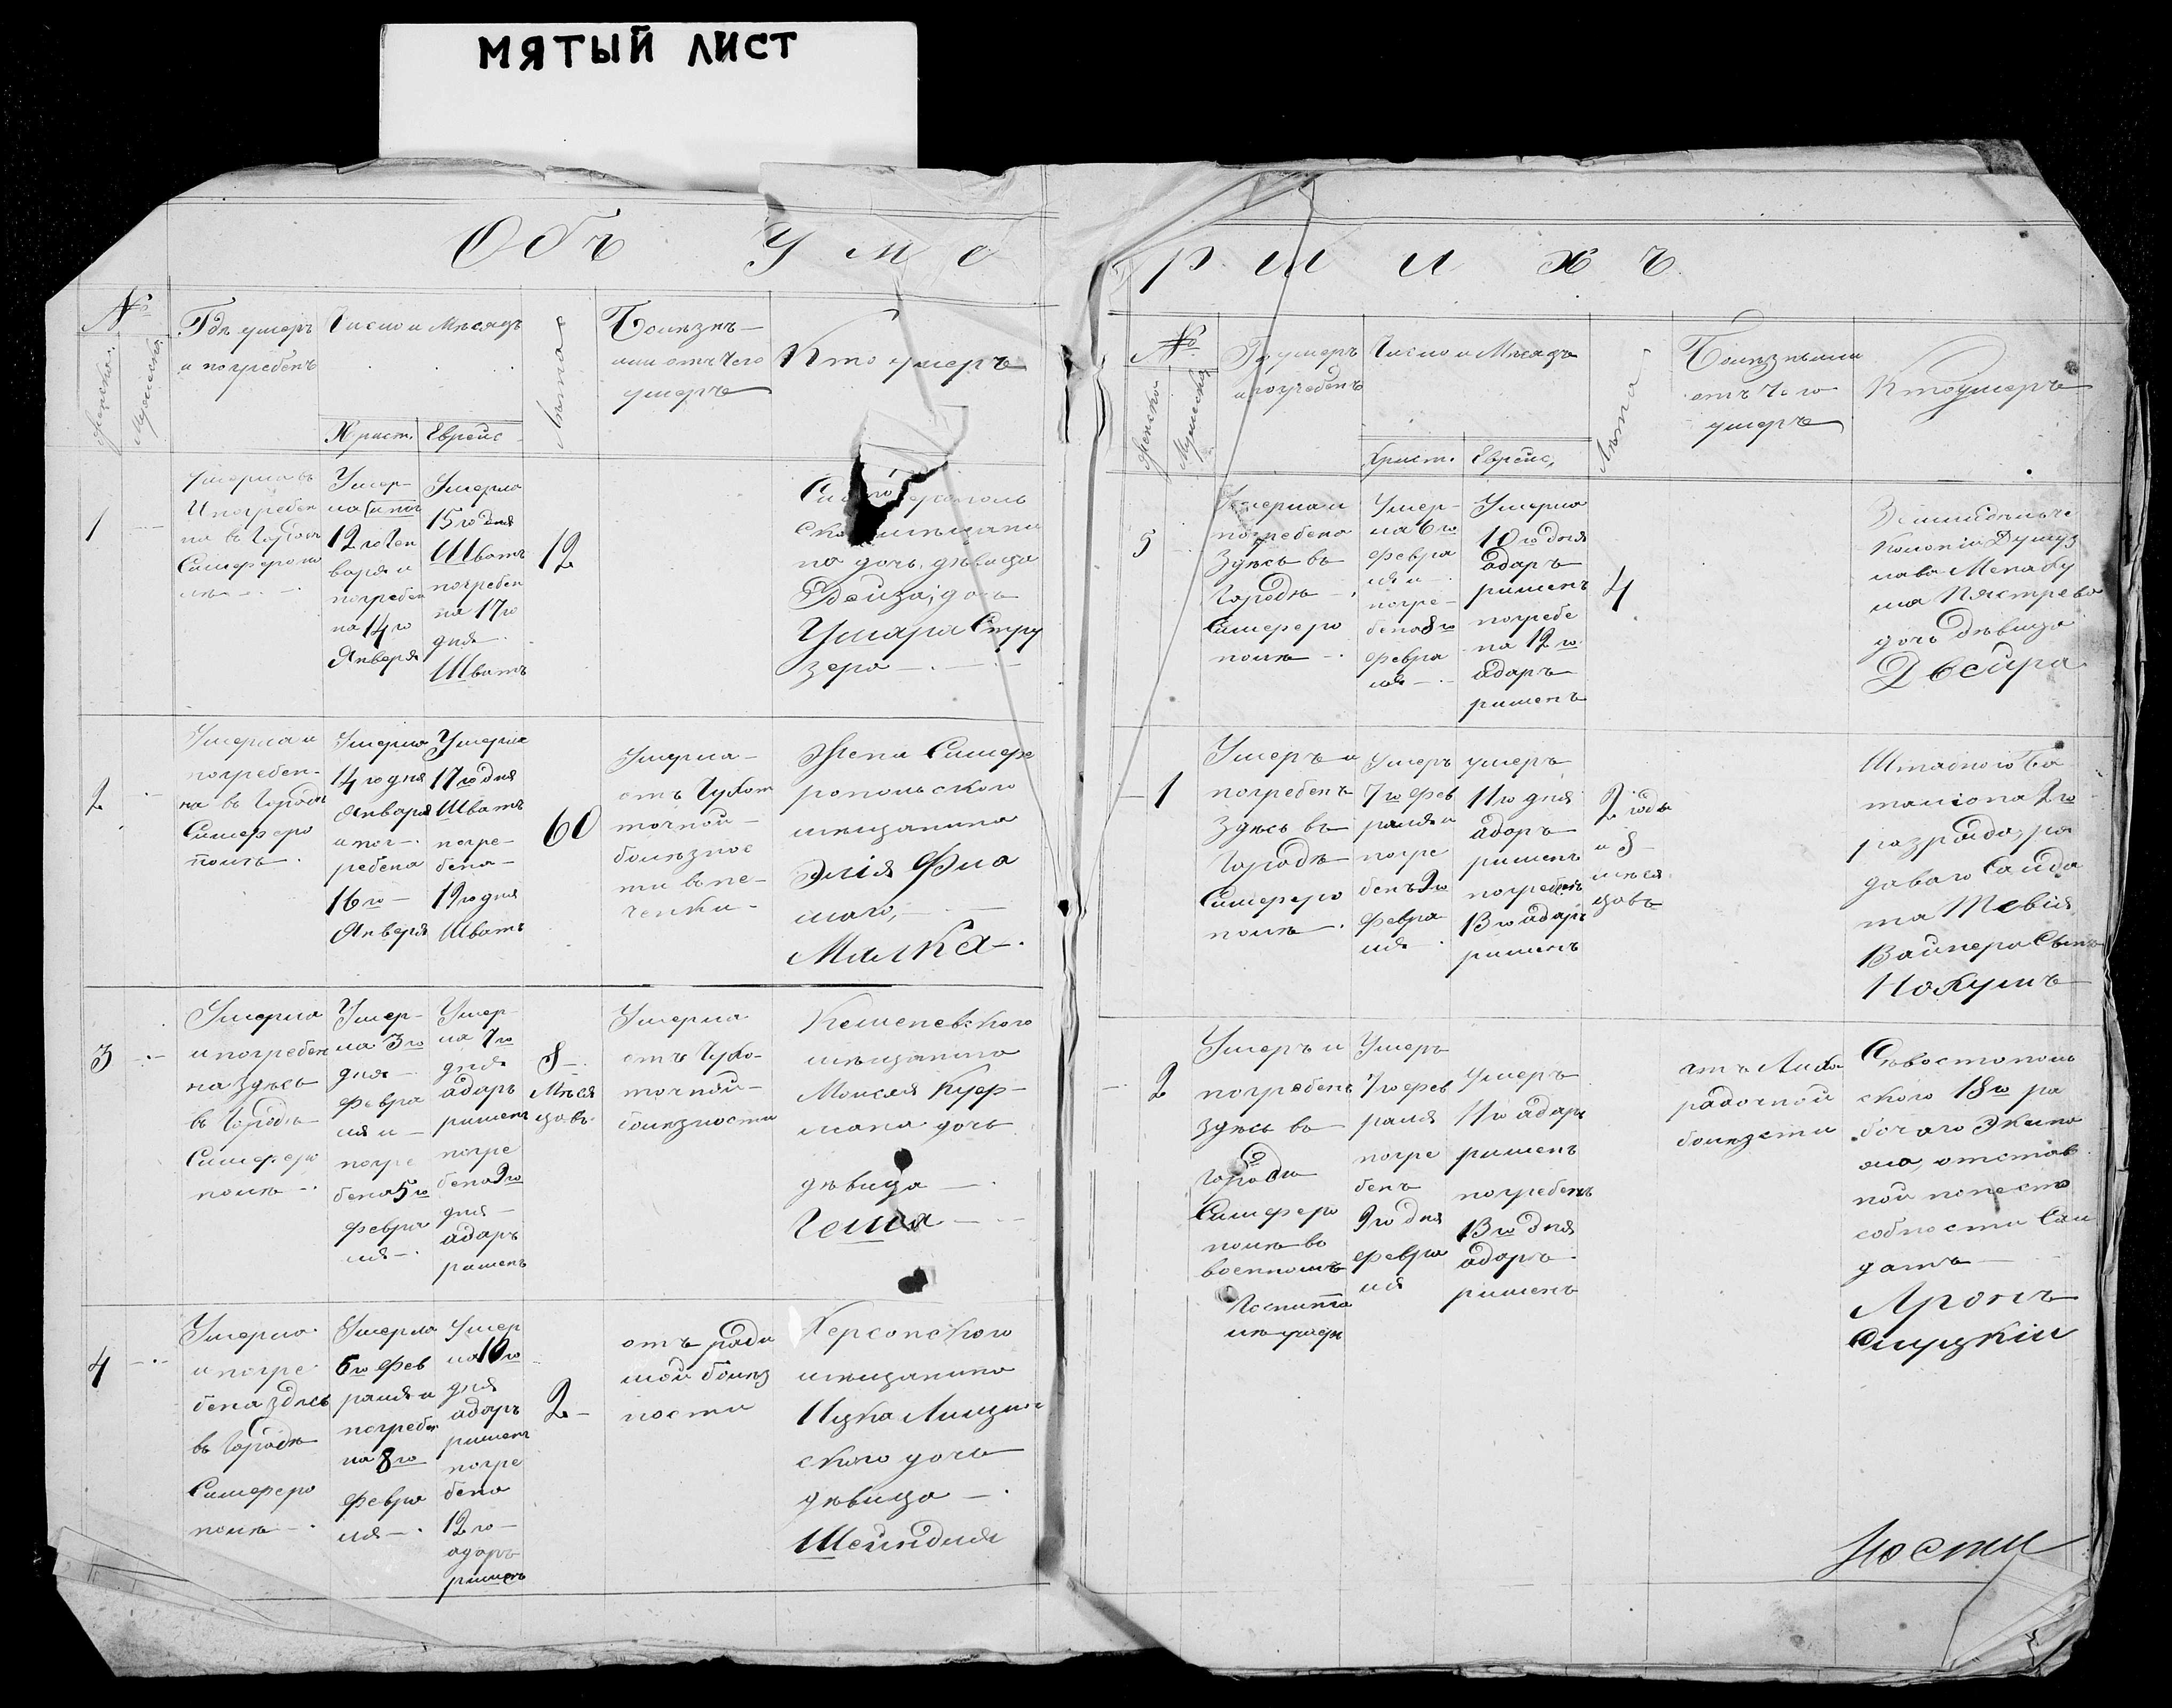 МЯТЫЙ ЛИСТ
Объ Умо
№
Женска.
Мужеска.
Гдѣ умеръ
и погребенъ
Число и Мѣсяцъ
Христ.
Еврейс
Лѣта
Болѣзнь
или отъ чего
умеръ
Кто умеръ
1
Умерла въ
И погребен
на въ Городѣ
Симферопо
лѣ
Умер-
ла и пог
12го Ген
варя и
погребен
на 14го
Января
Умерла
15го дня
Шватъ
погребен
на 17го
дня
Шватъ
12
ско мѣщани
на дочь, дѣвица
Рейза, дочь
Шмаря Стру
зера
2
Умерла и
погребен-
на въ Городѣ
Симферо
полѣ
Умерла
14го дня
Января
и пог-
ребена
16го
Января
Умерла
17го дня
Шватъ
погре-
бена
19го дня
Шватъ
60
Умерла
отъ Чухот
точной
болѣзнос
ти въ пе-
ченки
Жена Симфе
ропольского
мѣщанина
Элія Фиа
Малка
3
Умерла
и погребен
на здѣсь
въ Городѣ
Симферо
полѣ
Умер-
ла 3го
дня
Февра
ля и
погре
бена 5го
Февра
ля
Умер-
ла 7го
дня
адаръ
ришенъ
погре
бена 9го
дня
адаръ
ришенъ
8
Мѣся
цовъ
Умерла
отъ Чухо-
точной
болѣзности
Кешеневского
мѣщанина
Моисея Куф-
мана дочь
дѣвица
4
Умерла
и погре
бена здѣсь
въ Городѣ
Симферо
полѣ
Умерла
6го Фев
раля и
погребен
на 8го
Февра
ля
Умер
ла 10го
дня
адаръ
ришенъ
погре
бена
12го
адаръ
ришенъ
2
отъ роди
мой болѣз
ности
Херсонского
мѣщанина
Ицка Лищин
ского дочь
дѣвица
Шейндля
ршихъ
№
Женска
Мужеска
Гдѣ умеръ
и погребенъ
Число и Мѣсяцъ
Христ.
Еврейс,
Лѣта
Болѣзнь или
отъ чего
умеръ
Кто умеръ
5
Умерла и
погребена
Здѣсь въ
Городѣ
Симферо
полѣ
Умер-
ла 6го
Февра
ля и
погре-
бена 8го
Февра
ля
Умерла
10го дня
адаръ
ришенъ
погребе
на 12го
адаръ
ришенъ
4
дочь дѣвица
Двейра
1
Умеръ и
погребенъ
здѣсь въ
Городѣ
Симферо
полѣ
Умеръ
7го Фев
раля и
погре
бенъ 9го
Февра
ля
умеръ
11го дня
адаръ
ришенъ
погребенъ
13го адаръ
ришенъ
2 года
и 8
мѣся
цовъ
таліона 2го
разряда, ря
даваго Салда
та Тевія
Вайнера Сынъ
Нахумъ
2
Умеръ и
погребенъ
здѣсь въ
Городѣ
Симферо
полѣ въ
военномъ
Госпита
лѣ
Умеръ
7го Фев
раля
погре
бенъ
9го дня
Февра
ля
Умеръ
11го адаръ
ришенъ
погребенъ
13го дня
адаръ
ришенъ
отъ Лихо
радочной
болѣзсти
Сѣвостополь
ского 18го ра
бочаго Экипа
жа, отстав
ной по неспо
собности Сал
датъ
Аронъ
Слуцкій